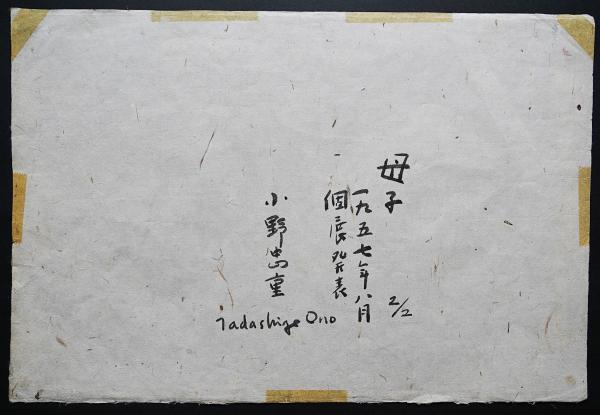 母子
2/2
一九五七年八月
個展発表
小野忠重
Tadashige Ono